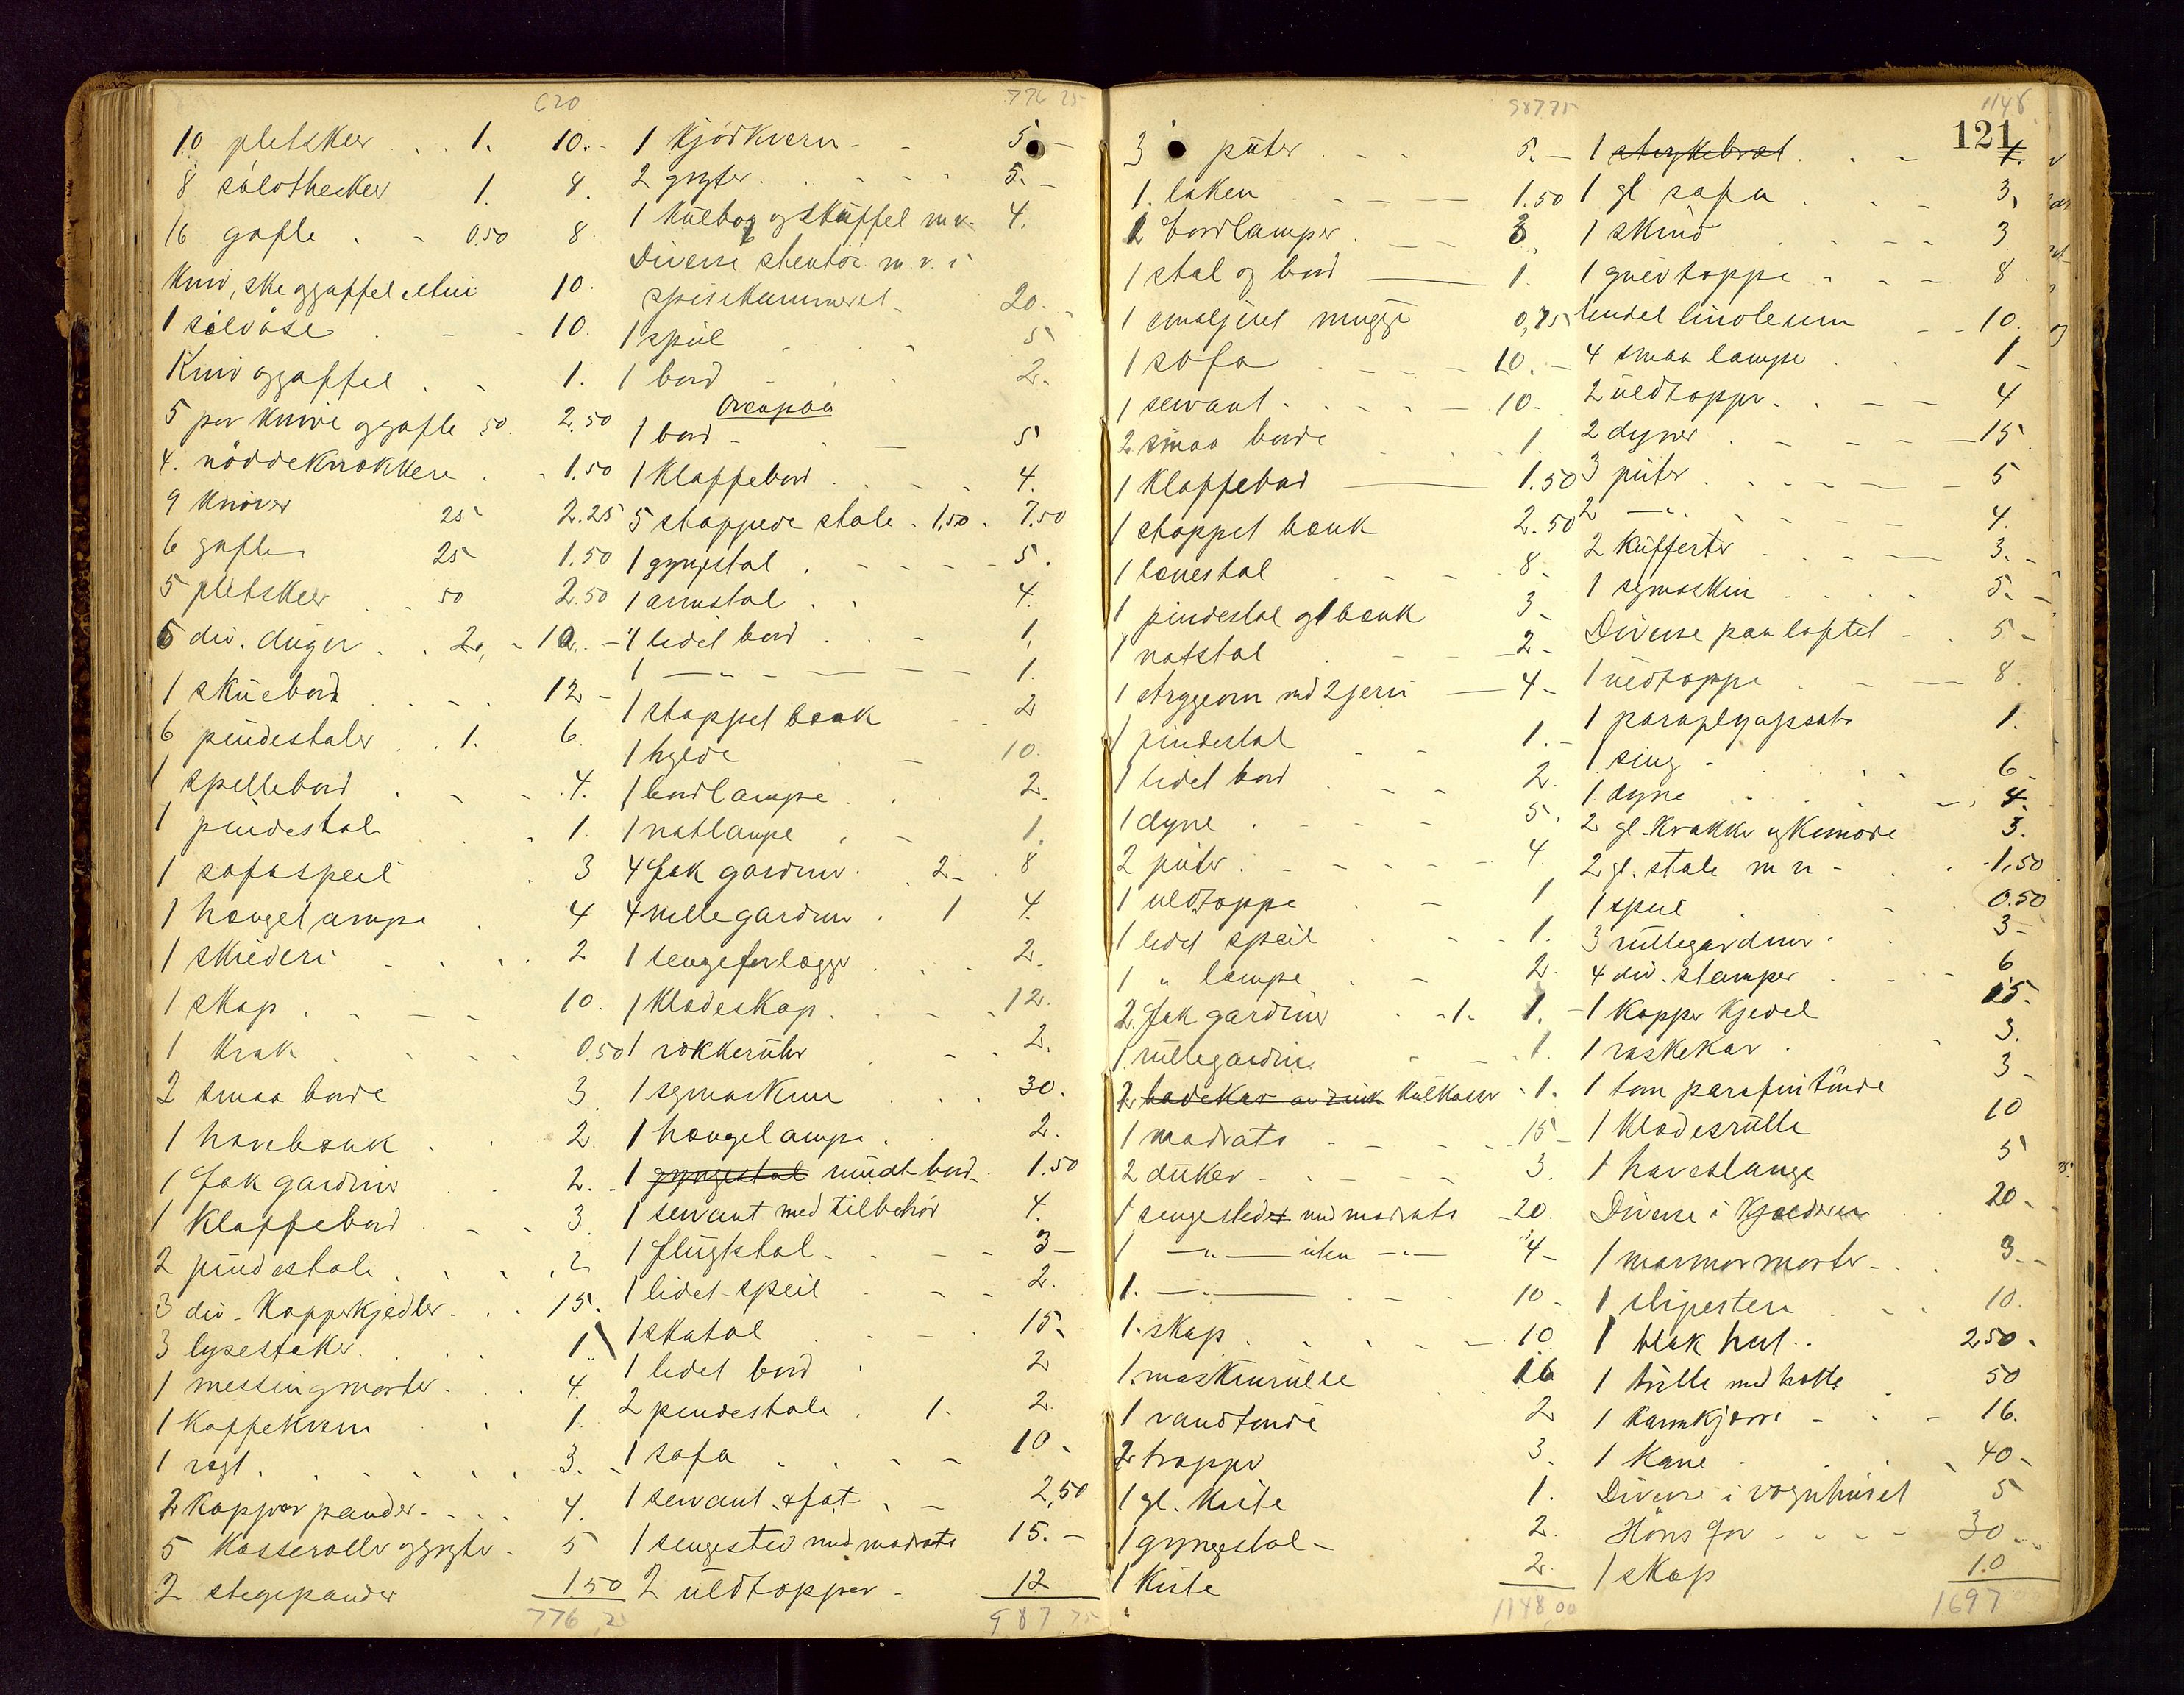 620
10 pletskeer . . 1. 10.-
8 sølotheskeer 1. 8.
16 gafle . - 0,50 8.
Kniv, ske og gaffel i etui 10.
1 sølvøse . - - 10.
Kniv og gaffel . - 1.
5 par knive og gafle 50. 2.50
4. nøddeknækkere . - 1.50
9 knive 25 2.25
6 gafler 25 1.50
5 pletskeer . - 50 2.50
5 div. duger . . 2., - 10. -
1 skuebord . . . 12 -
6 pindestoler . . 1. 6.
1 spillebord . - - 4.
1 pindestol . . 1.
1 sofaspeil . 3
1 hængelampe . 4
1 skilderi - . . . 2
1 skap . - - - 10.
1 krak . - - - 0.50
2 smaa borde 3.
1 havebænk . . 2.
1 fak gardiner . . 2. -
1 Klappebord . - - 3.
2 pindestole . . . 2
3 div. Kopperkjedler . . . 15.
3 lysestaker . . . 1
1 messingmorter . . . 4.
1 Kaffekvern . 1.
1 vægt . . . . . . 3. -
2 Kopper pander . - . . 4.
5 Kasseroller og gryter - 5
2 stegepander 1.50
776,25
776 25
1 Kjødkvern - - 5 -
2 gryter . . - - - 5. -
1 Kulbox og skuffel m.v. 4.
Diverse stentøi m.v. i
spisekammeret - 20. -
1 speil . - - 5
1 bord - . . 2.
Ovenpaa
1 bord - . - 5
1 Klappebord . . - - 4.
5 stoppede stole . 1,50 . 7.50
1 gyngestol . - - - - 5.
1 armstol . . 4.
1 lidet bord . . - 1.
1 - " - - - - 1.
1 stoppet bænk - - 2
1 hylde . - 10.
1 bordlampe . . . 2.
1 natlampe . - 1.
4 fak gardiner . . 2 - . 8
4 rullegardiner . 1 4.
1 sengeforlægger . . . 2.
1 Klædeskap . . - - 12.
1 vækkeruhr . - - 2.
1 symaskine . . . 30.
1 hængelampe . . 2.
1 gyngestol rundt bord . 1.50
1 servant med tilbehør 4.
1 flugtstol - . - - 3 -
1 lidet speil . - - 2.
1 skatol . . - . 15.
1 lidet bord . 2
2 pindestole . 1. 2.
1 sofa . . - - 10 -
1 servant & fat - . - 2,50
1 sengested med madrats 15. -
2 uldtepper - 12
987 75
987.75
3 puter . - - 5. -
1. laken . . - - - 1.50
2 bordlamper . - - 3.
1 stol og bord - 1.
1 emaljert mugge 0,75
1 sofa . - - - 10. -
1 servant - . . . - 10.
2 smaa borde . . 1.
1 Klappebord - 1.50
1 stoppet bænk 2.50
1 lænestol . - - 8.
1 pindestol og 1 bænk 3 -
1 natstol . - - 2 -
1 strygeovn med 2 jern - 4 -
1 pindestol - - 1. -
1 lidet bord . - - 2.
1 dyne . - - - 5.
2 puter . - - - - 4.
1 uldteppe . - 1
1 lidet speil . - - 1.
1 " lampe . - 2.
2 fak gardiner - 1. 1.
1 rullegardin . - - 1.
2 badekar av zink Kulkasser - 1.
1 madrats . - - - 15 -
2 duker - . - - - 3.
1 sengested med madrats 20.
1 - " - uten - " - 4 -
1. - " - . - - 10 -
1. skap . . . - - 10
1. maskinrulle . . 16
1 vandtønde 2
2 trapper 3.
1 gl. Kiste 1.
1 gyngestol - 2.
1 Kiste 2.
1148,00
1148
121
1 strykebræt . . - 1.
1 gl sofa . . . - 3,
1 skind . . - - 3
1 gulvteppe . - - 8.
Endel linoleum - - 10.
4 smaa lamper . . 1 -
2 uldtepper . . - - 4
2 dyner . - - - 15
3 puter . . - - - - 5
2 - " - - - - 4.
2 kufferter . . - - 3. -
1 symaskin . . . . 5. -
Diverse paa loftet - . 5 -
1 uldteppe . - - 8.
1 paraplyopsats 1.
1 seng - . . . . 6 -
1 dyne . . . . - . 4.
2 gl. Krakker og Komode 3.
2 gl. stole m m - . . 1.50
1 speil . - 0.50
3 rullegardiner . . 3 -
4 div. stamper . . - 6
1 Kopper Kjedel 15.
1 vaskekar . . - 3.
1 tom parafintønde 3 -
1 Klædesrulle 10
1 haveslange 5
Diverse i Kjælderen . 20 -
1 marmor morter - . . 3 -
1 slipesten . . . 10.
1 blak hest . . 250 -
1 trille med hotte . 50
1 Karmkjærre - - - 16.
1 Kane - . . - 40 -
Diverse i vognhuset 5
Høns for - - - - 30 -
1 skap 10
1697 00